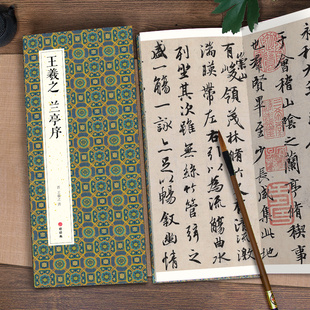 王羲之 兰亭序
永和
于會稽山陰之蘭亭脩稧事
也群賢畢至少長咸集此地
有峻領茂林脩竹又有清流激
湍暎帶左右引以為流觴曲水
列坐其次雖無絲竹管弦之
盛一觴一詠亦足以暢叙幽情